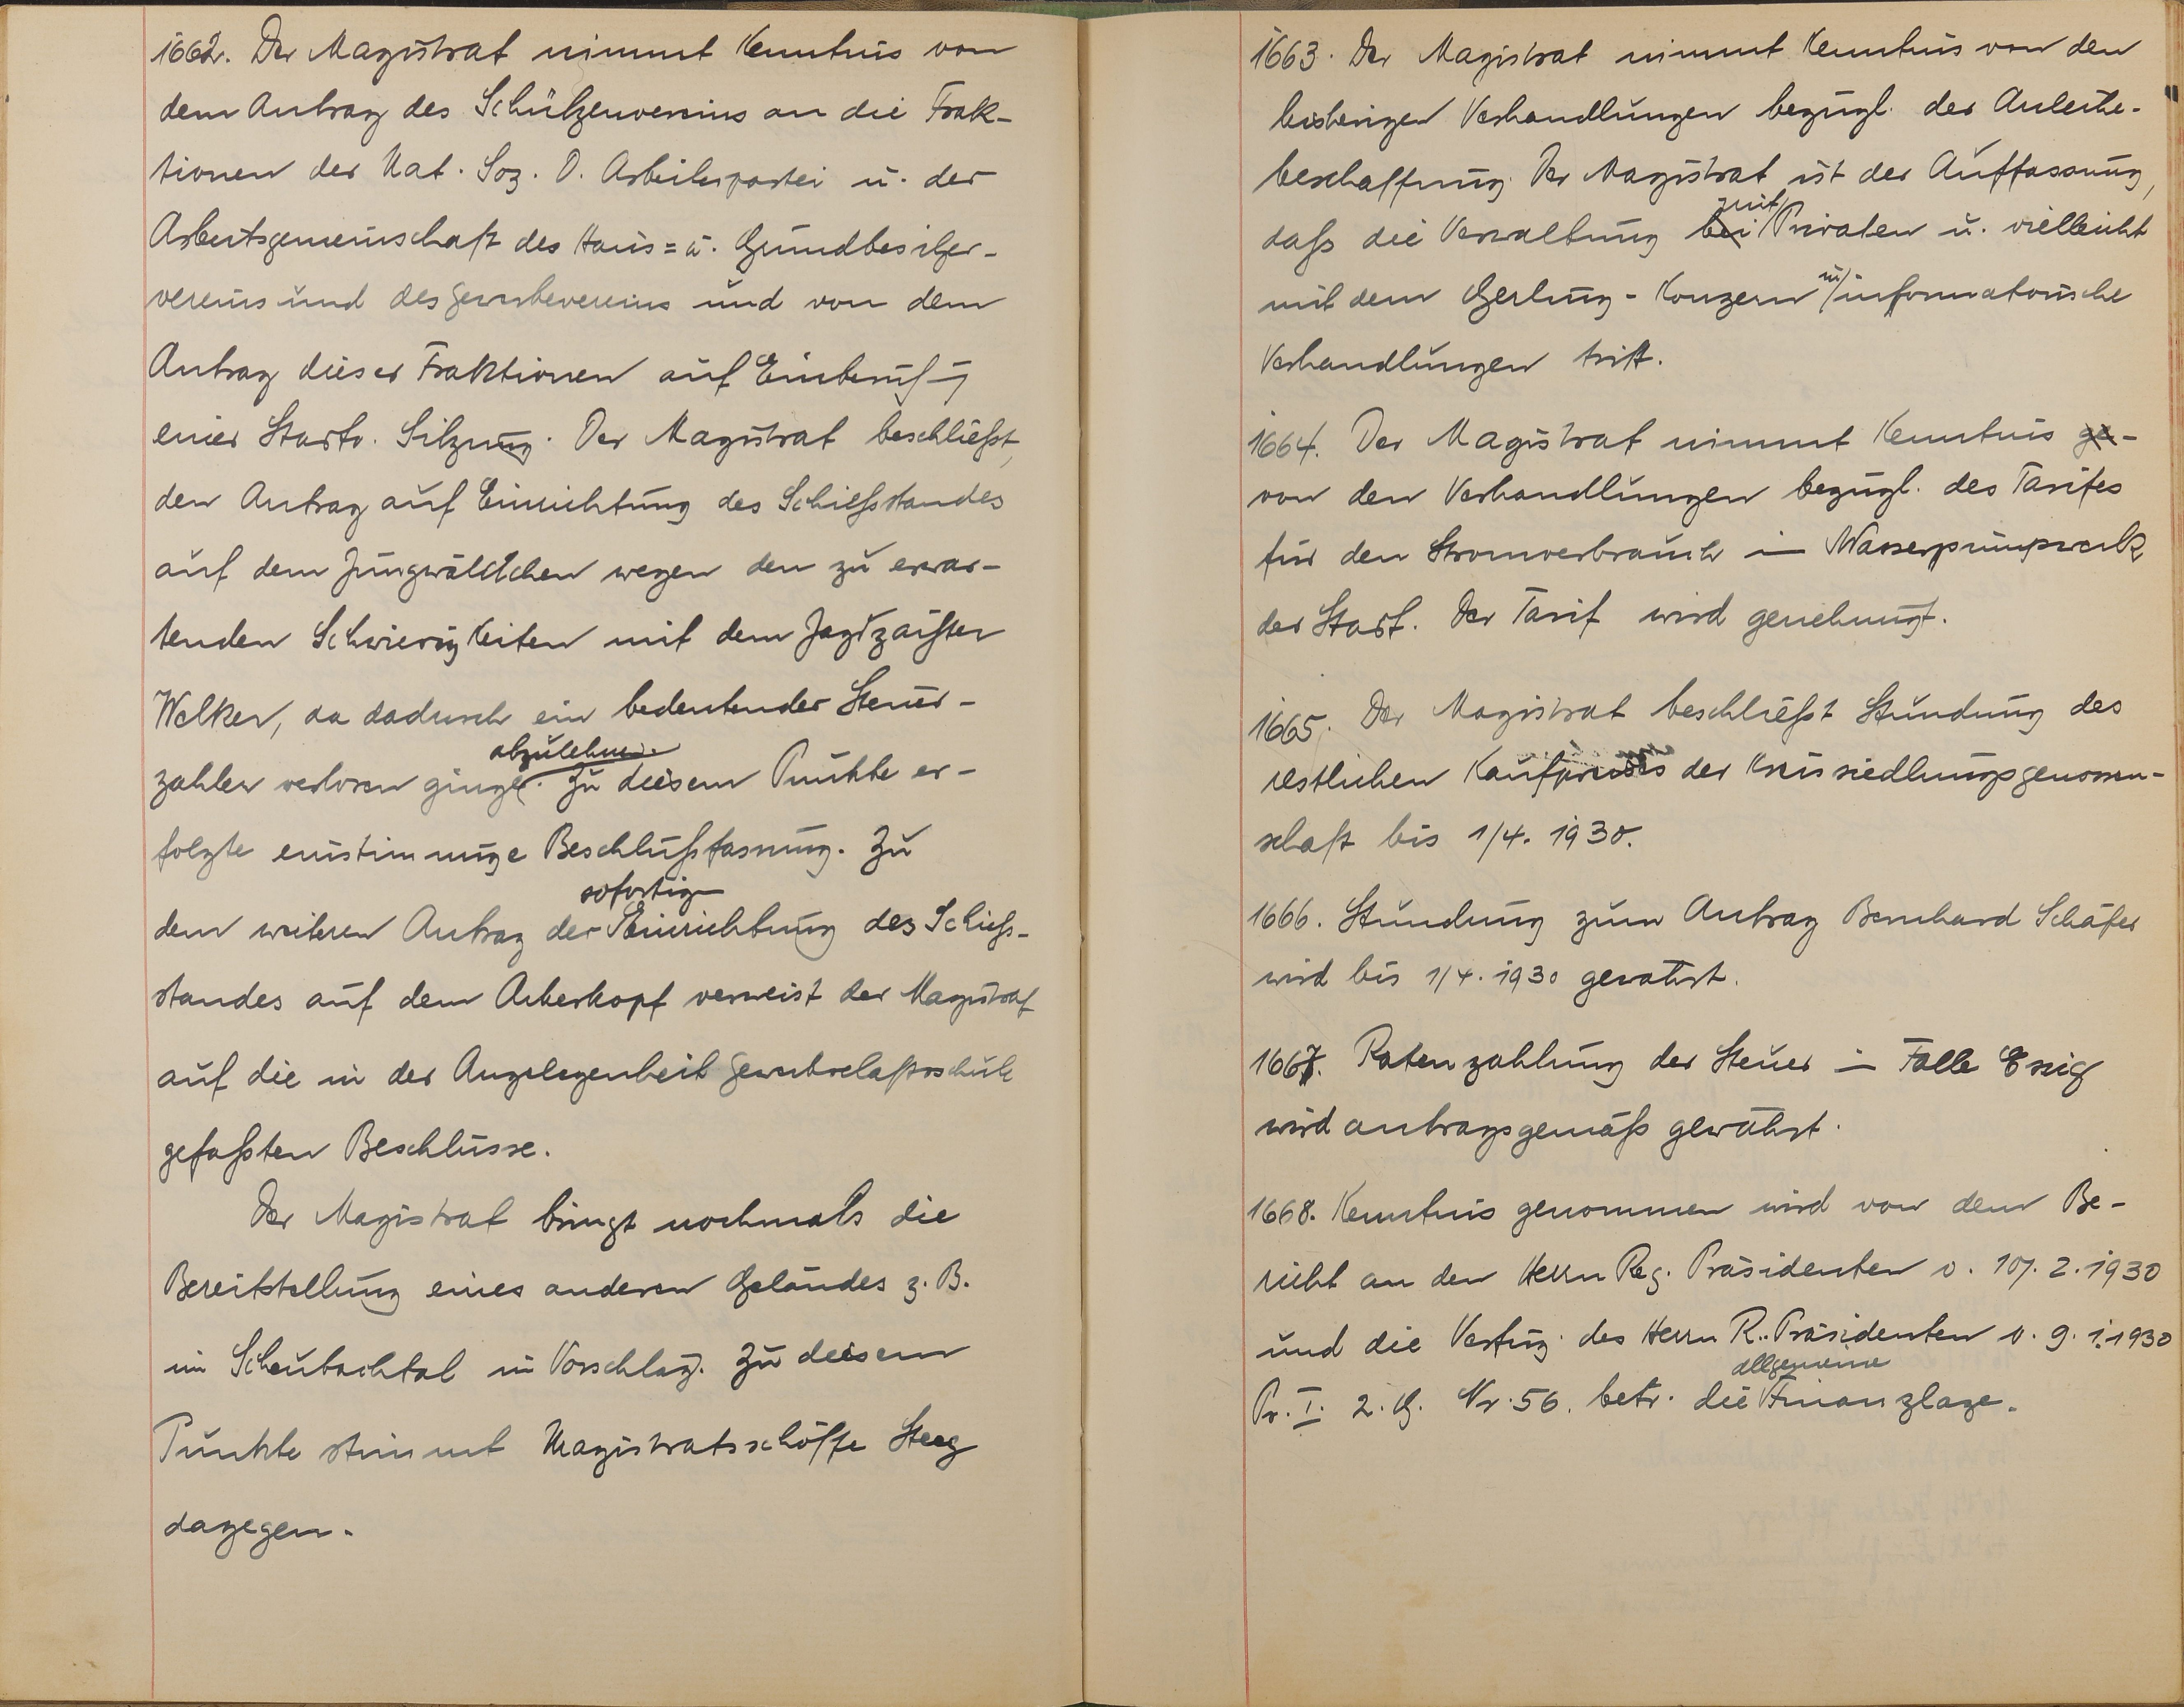 1662. Der Magistrat nimmt Kenntnis von
dem Antrag des Schützenvereins an die Frak-
tionen der Nat. Soz. D. Arbeiterpartei u. der
Arbeitsgemeinschaft des Haus= u. Grundbesitzer-
vereins und des Gewerbevereins und von dem
Antrag dieser Fraktionen auf Einberufg
einer Stadtv. Sitzung. Der Magistrat beschließt,
den Antrag auf Einrichtung des Schießstandes
auf dem Jungwäldchen wegen den zu erwar-
tenden Schwierigkeiten mit dem Jagdpächter
Welker, da dadurch ein bedeutender Steuer-
abzulehnen.
zahler verloren ginge. Zu diesem Punkte er-
folgte einstimmige Beschlußfassung. Zu
sofortigen
dem weiteren Antrag der Einrichtung des Schieß-
standes auf dem Arberkopf verweist der Magistrat
auf die in der Angelegenheit
gefaßten Beschlüsse.
Der Magistrat bringt nochmals die
Bereitstellung eines anderen Geländes z. B.
im Scheubachtal in Vorschlag. Zu diesem
Punkte stimmt Magistratsschöffe Steeg
dagegen.
1663. Der Magistrat nimmt Kenntnis von den
bisherigen Verhandlungen bezügl. der Anleihe-
beschaffung. Der Magistrat ist der Auffassung,
mit
daß die Verwaltung bei Privaten u. vielleicht
mit dem Gerling-Konzern in informatorische
Verhandlungen tritt.
1664. Der Magistrat nimmt Kenntnis ge-
von den Verhandlungen bezügl. des Tarifes
für den Stromverbrauch im Wasserpumpwerk
der Stadt. Der Tarif wird genehmigt.
1665. Der Magistrat beschließt Stundung des
restlichen Kaufpreises der Kreissiedlungsgenossen-
schaft bis 1/4. 1930.
1666. Stundung zum Antrag Bernhard Schäfer
wird bis 1/4. 1930 gewährt.
1667. Ratenzahlung der Steuer im Falle Essig
wird antragsgemäß gewährt.
1668. Kenntnis genommen wird von dem Be-
richt an den Herrn Reg. Präsidenten v. 10. 2. 1930
und die Verfüg. des Herrn R. Präsidenten v. 9. 1. 1930
allgemeine
Pr. I. 2. G. Nr. 56. betr. die Finanzlage.